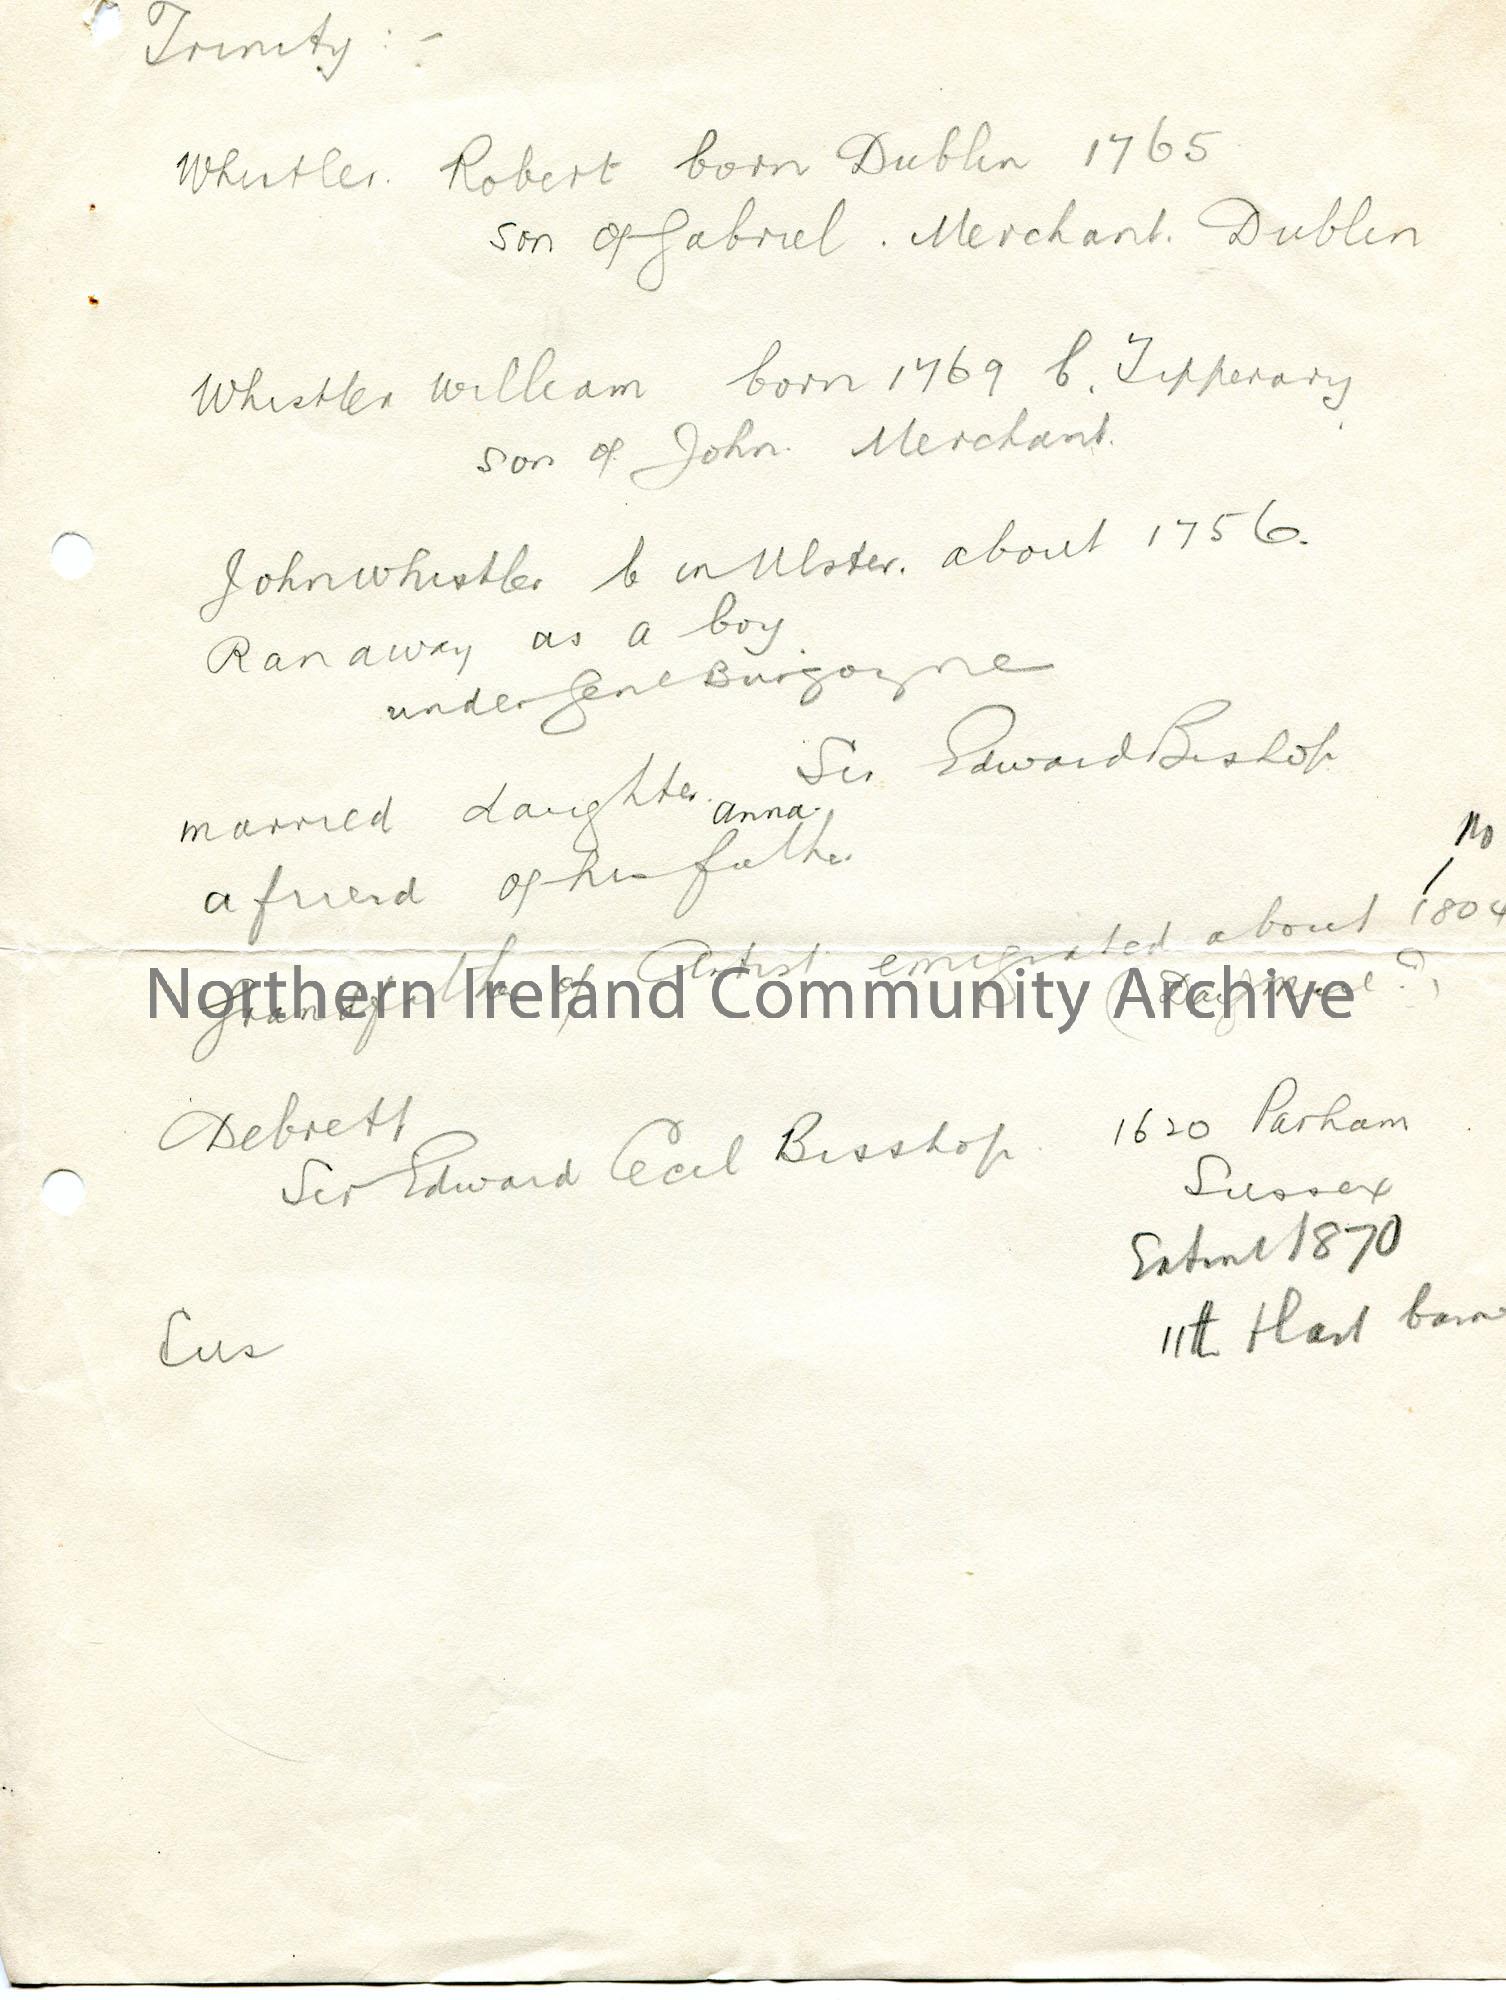 Trinity :-
Whistler. Robert born Dublin 1765
son of Gabriel . Merchant. Dublin
Whistler William born 1769 b. Tipperary
son of John. Merchant.
John Whistler b in Ulster. about 1756.
Ran away as a boy
under Genl Burgoyne
married daughter Anna. Sir Edward Bishop
a friend of his father
No
Grandfather of Artist emigrated about 1804
Northern Ireland Community Archive
Debrett
Sir Edward Cecil Bisshop. 1620 Parham
Sussex
Extinct 1870
11th